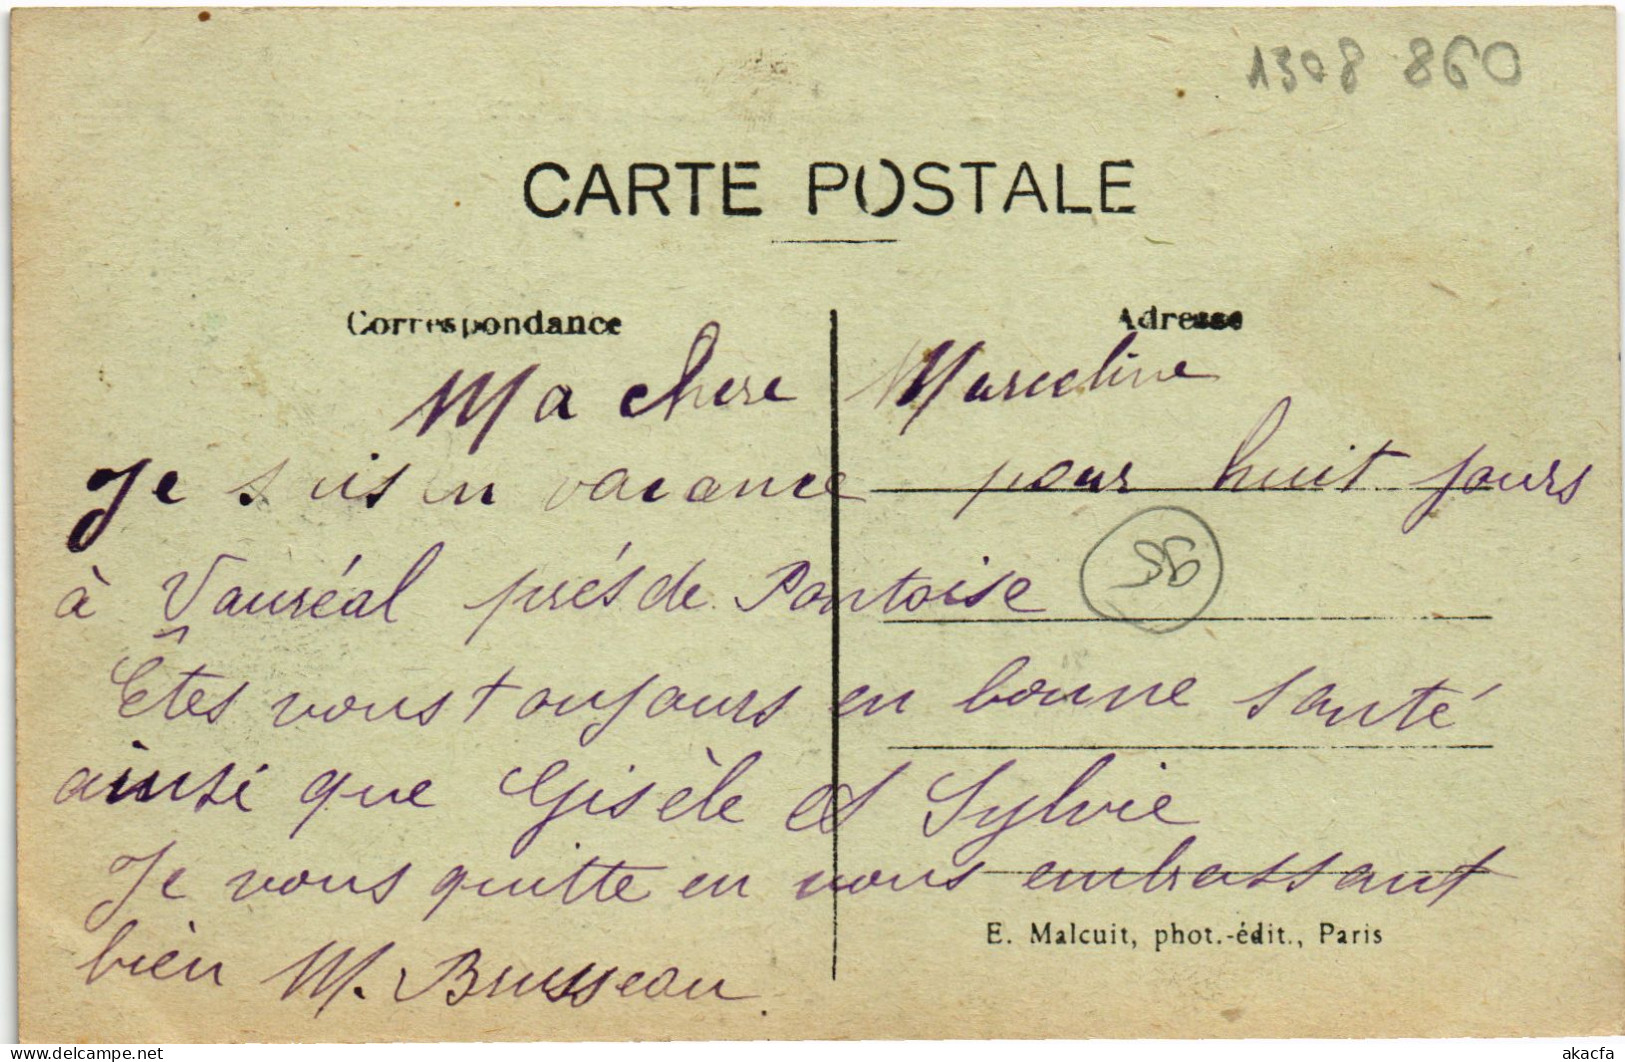 1308 860
CARTE POSTALE
Correspondance
Adresse
Ma chere Marceline
Je suis en vacance pour huit jours
à Vauréal prés de Pontoise
95
Êtes vous toujours en bonne santé
ainsi que Gisèle et Sylvie
Je vous quitte en vous embrassant
bien M. Brusseau
E. Malcuit, phot.-édit., Paris
akacfa